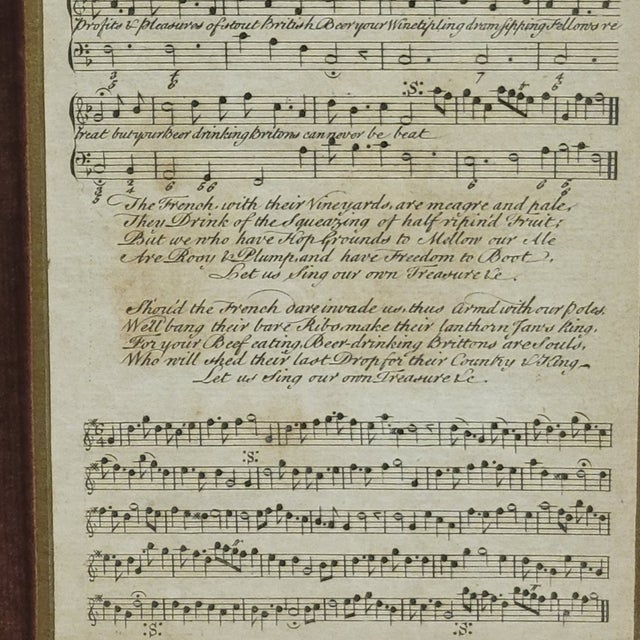 Profits & Pleasures of stout British Beer your Wine tipling dram sipping Fellows re
treat but your Beer drinking Britons can never be beat
The French with their Vineyards, are meagre and pale,
They Drink of the Squeazing of half ripin'd Fruit;
But we who have Hop Grounds to Mellow our Ale
Are Rosy & Plump, and have Freedom to Boot.
Let us Sing our own Treasure &c.
Shou'd the French dare invade us, thus Arm'd with our Poles.
We'll bang their bare Ribs, make their lanthorn Jaws Ring,
For your Beef eating, Beer-drinking Brittons are Souls,
Who will shed their last Drop for their Country & King
Let us Sing our own Treasure &c.